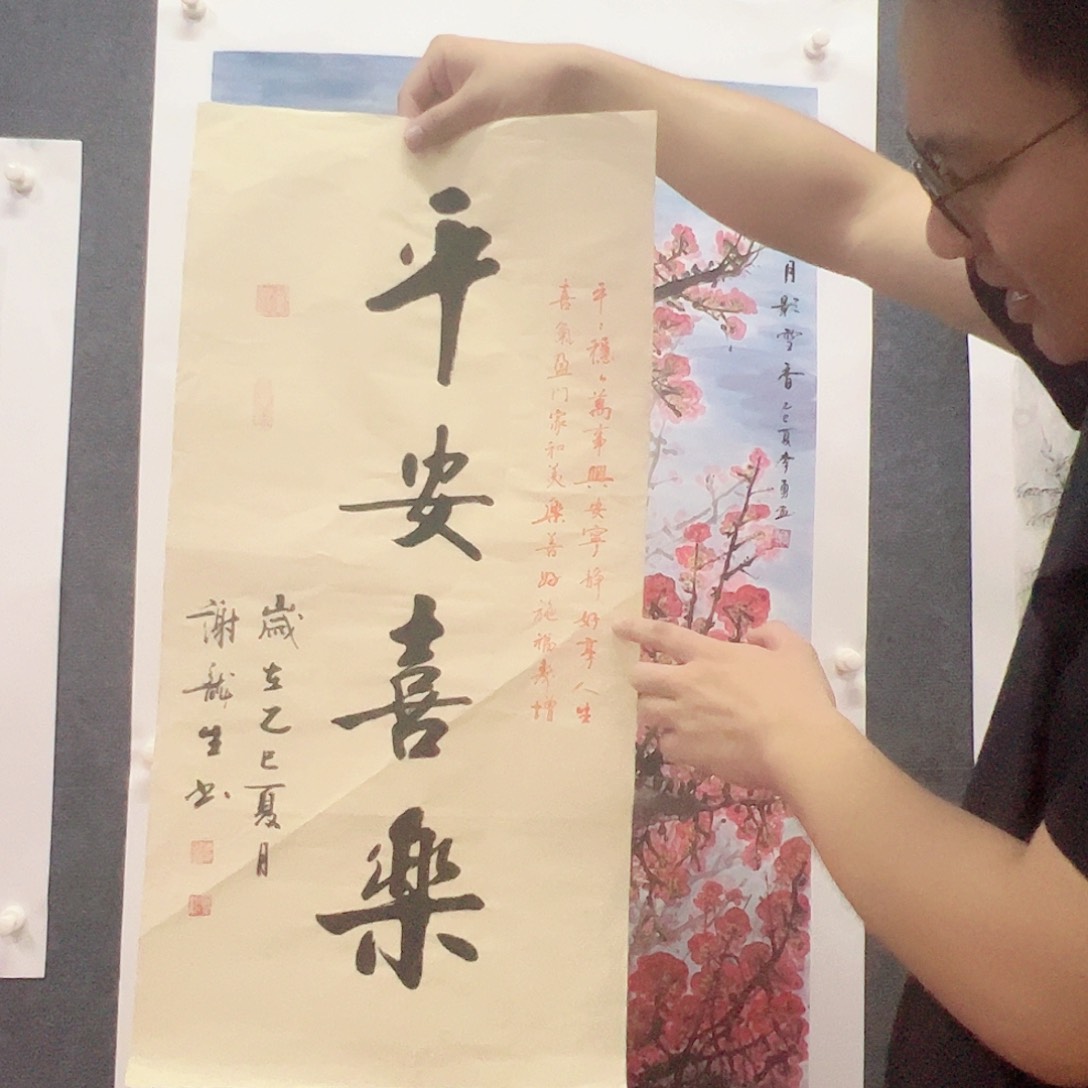 月影雪香 乙巳夏李勇画
平〻穩〻萬事興安寧靜好享人生
喜氣盈门家和美樂善好施福壽增
平安喜樂
歲在乙巳夏月
謝龍生书